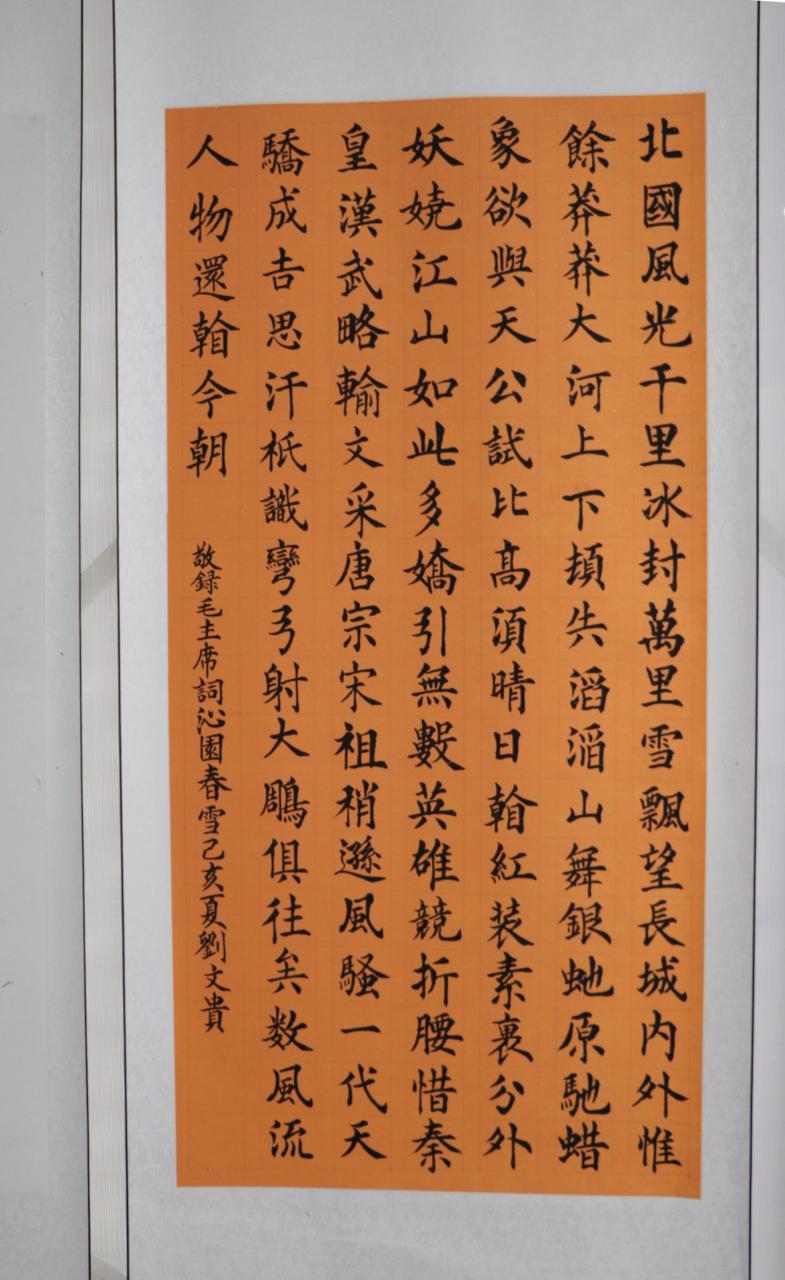 北國風光千里冰封萬里雪飄望長城内外惟
餘莽莽大河上下頓失滔滔山舞銀虵原馳蜡
象欲與天公試比高須晴日看紅装素裹分外
妖娆江山如此多嬌引無數英雄競折腰惜秦
皇漢武略輸文采唐宗宋祖稍遜風騷一代天
驕成吉思汗衹識彎弓射大鵰俱往矣数風流
人物還看今朝
敬録毛主席詞沁園春雪己亥夏劉文貴